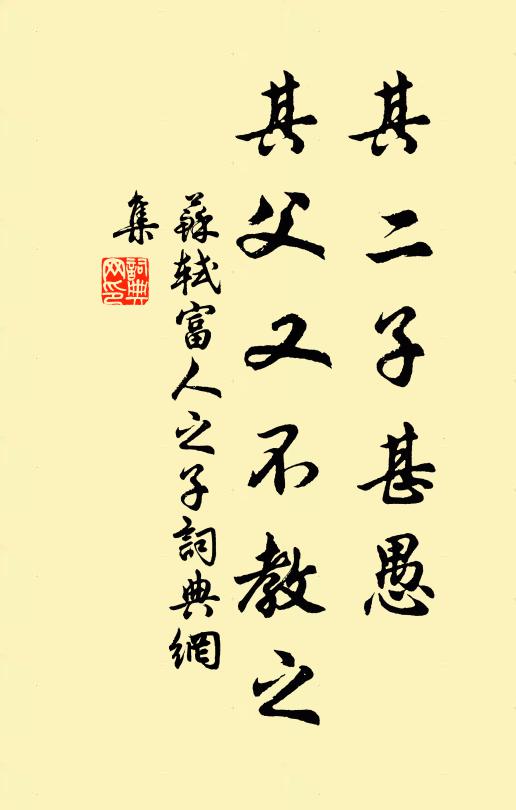 其二子甚愚
其父又不教之
蘇軾富人之子詞典網
集
詞典
网印